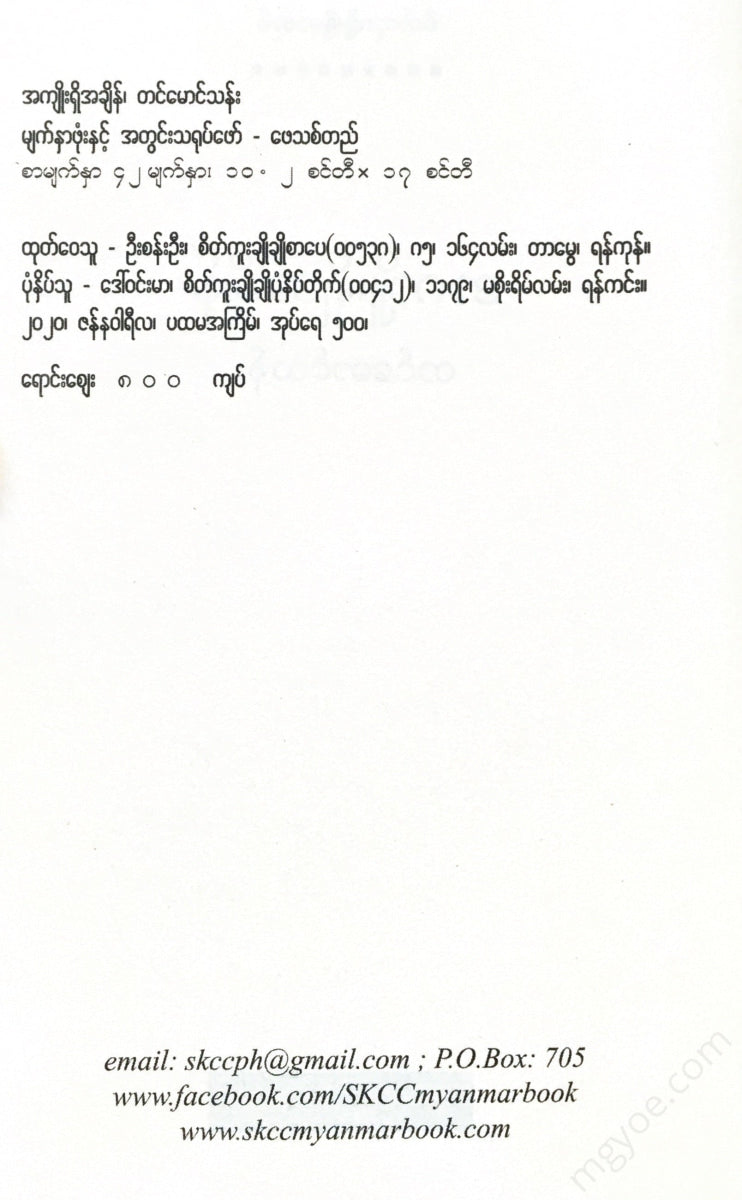 အကျိုးရှိအချိန်၊ တင်မောင်သန်း
မျက်နှာဖုံးနှင့် အတွင်းသရုပ်ဖော် - ဖေသစ်တည်
စာမျက်နှာ ၄၂ မျက်နှာ၊ ၁၀ ⋅ ၂ စင်တီ × ၁၇ စင်တီ
ထုတ်ဝေသူ - ဦးစန်းဦး၊ စိတ်ကူးချိုချိုစာပေ(၀၀၅၃၈)၊ ဂ၅၊ ၁၆၄လမ်း၊ တာမွေ၊ ရန်ကုန်။
ပုံနှိပ်သူ - ဒေါ်ဝင်းမာ၊ စိတ်ကူးချိုချိုပုံနှိပ်တိုက်(၀၀၄၁၂)၊ ၁၁၇၉၊ မစိုးရိမ်လမ်း၊ ရန်ကင်း။
၂၀၂၀၊ ဇန်နဝါရီလ၊ ပထမအကြိမ်၊ အုပ်ရေ ၅၀၀၊
ရောင်းဈေး ၈ ၀ ၀ ကျပ်
email: skccph@gmail.com ; P.O.Box: 705
www.facebook.com/SKCCmyanmarbook
www.skccmyanmarbook.com
mgyoe.com